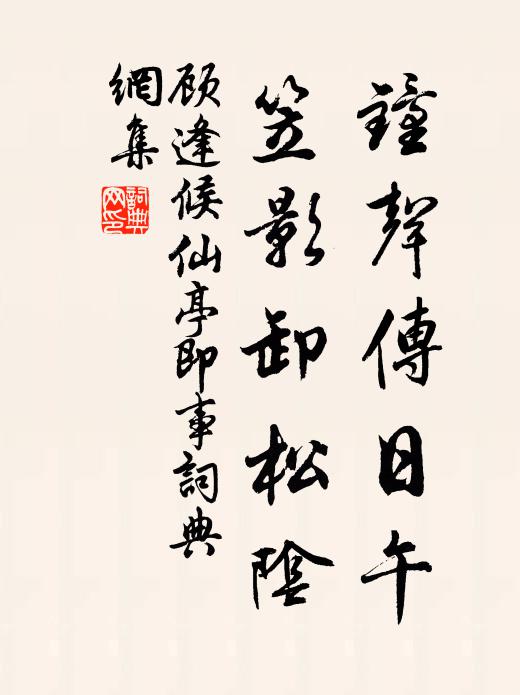 鐘聲傳日午
笠影卸松陰
顧逢候仙亭即事詞典
網集
詞典
网印